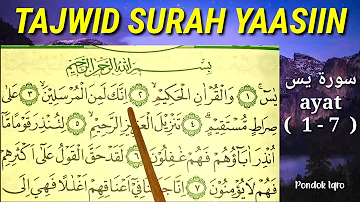 TAJWID SURAH YAASIIN
بِسْمِ اللّٰهِ الرَّحْمٰنِ الرَّحِيْمِ
يٰسۤ ۝١ وَالْقُرْاٰنِ الْحَكِيْمِ ۝٢ اِنَّكَ لَمِنَ الْمُرْسَلِيْنَ ۝٣ عَلٰى
صِرَاطٍ مُّسْتَقِيْمٍ ۝٤ تَنْزِيْلَ الْعَزِيْزِ الرَّحِيْمِ ۝٥ لِتُنْذِرَ قَوْمًا مَّآ
اُنْذِرَ اٰبَآؤُهُمْ فَهُمْ غٰفِلُوْنَ ۝٦ لَقَدْ حَقَّ الْقَوْلُ عَلٰٓى اَكْثَرِهِمْ
فَهُمْ لَا يُؤْمِنُوْنَ ۝٧ اِنَّا جَعَلْنَا فِيْٓ اَعْنَاقِهِمْ اَغْلٰلًا فَهِيَ اِلَى
سورة يس
ayat
( 1 - 7 )
Pondok Iqro